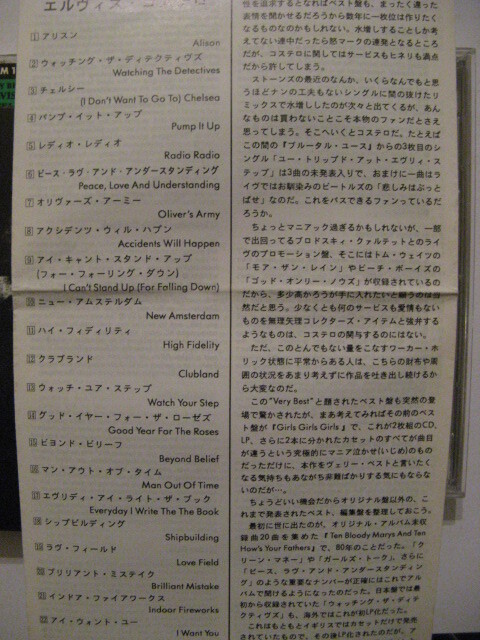 エルヴィス・コステロ
1 アリスン
Alison
2 ウォッチング・ザ・ディテクティヴズ
Watching The Detectives
3 チェルシー
(I Don't Want To Go To) Chelsea
4 パンプ・イット・アップ
Pump It Up
5 レディオ・レディオ
Radio Radio
6 ピース・ラヴ・アンド・アンダースタンディング
Peace, Love And Understanding
7 オリヴァーズ・アーミー
Oliver's Army
8 アクシデンツ・ウィル・ハプン
Accidents Will Happen
9 アイ・キャント・スタンド・アップ
(フォー・フォーリング・ダウン)
I Can't Stand Up (For Falling Down)
10 ニュー・アムステルダム
New Amsterdam
11 ハイ・フィディリティ
High Fidelity
12 クラブランド
Clubland
13 ウォッチ・ユア・ステップ
Watch Your Step
14 グッド・イヤー・フォー・ザ・ローゼズ
Good Year For The Roses
15 ビヨンド・ビリーフ
Beyond Belief
16 マン・アウト・オブ・タイム
Man Out Of Time
17 エヴリディ・アイ・ライト・ザ・ブック
Everyday I Write The Book
18 シップビルディング
Shipbuilding
19 ラヴ・フィールド
Love Field
20 ブリリアント・ミステイク
Brilliant Mistake
21 インドア・ファイアワークス
Indoor Fireworks
22 アイ・ウォント・ユー
I Want You
性を追求するとなればベスト盤も、まったく違った
表情を聞かせるだろうから数年に一枚位は作りたく
なるものなのかもしれない。水増しすることしか考
えてない連中だったら怒マークの連発となるところ
だが、コステロに関してはサービスもヒネリも満点
だから許してしまう。
ストーンズの最近のなんか、いくらなんでもと思
うほどナンの工夫もないシングルに間の抜けたリ
ミックスで水増ししたのが次々と出てくるが、あん
なものは買わないことこそ本物のファンだとさえ
思ってしまう。そこへいくとコステロだ。たとえば
この間の『ブルータル・ユース』からの3枚目のシ
ングル「ユー・トリップド・アット・エヴリィ・ス
テップ」は3曲の未発表入りで、おまけに一曲はラ
イヴではお馴染みのビートルズの「悲しみはぶっと
ばせ」なのだ。これをパスできるファンっているだ
ろうか。
ちょっとマニアック過ぎるかもしれないが、一部
で出回ってるブロドスキィ・クァルテットとのライ
ヴのプロモーション盤、そこにはトム・ウェイツの
「モア・ザン・レイン」やビーチ・ボーイズの
「ゴッド・オンリー・ノウズ」が収録されているの
だから、多少高かろうが手に入れたいと願うのは当
然だと思う。少なくとも何のサービスも愛情もない
ものを無理矢理コレクターズ・アイテムと強弁する
ようなものは、コステロの関与するのにはない。
ただ、このとんでもない量をこなすワーカー・ホ
リック状態に平常からある人は、こちらの財布や周
囲の状況をあまり考えずに作品を吐き出し続けるか
ら大変なのだ。
この"Very Best"と題されたベスト盤も突然の登
場で驚かされたが、まあ考えてみればその前のベス
ト盤が『Girls Girls Girls』で、これが2枚組のCD、
LP、さらに2本に分かれたカセットのすべてが曲目
が違うという究極的にマニア泣かせ(いじめ)のもの
だっただけに、本作をヴェリー・ベストと言いたく
なる気持ちもあながち非難ばかりする気にもならな
いのだが…。
ちょうどいい機会だからオリジナル盤以外の、こ
れまで発表されたベスト、編集盤を整理しておこう。
最初に世に出たのが、オリジナル・アルバム未収
録曲20曲を集めた『Ten Bloody Marys And Ten
How's Your Fathers』で、80年のことだった。「ク
リーン・マネー」や「ガールズ・トーク」、さらに
「ピース、ラヴ・アンド・アンダースタンディン
グ」のような重要なナンバーが正確にはこれでアル
バムで聞けるようになったのだった。日本盤では最
初から収録されていた「ウォッチング・ザ・ディテ
クティヴズ」も、海外ではこれが初LP化だった。
これはもともとイギリスではカセットだけで発売
されていたもので、その後LP化されたのだが、ア